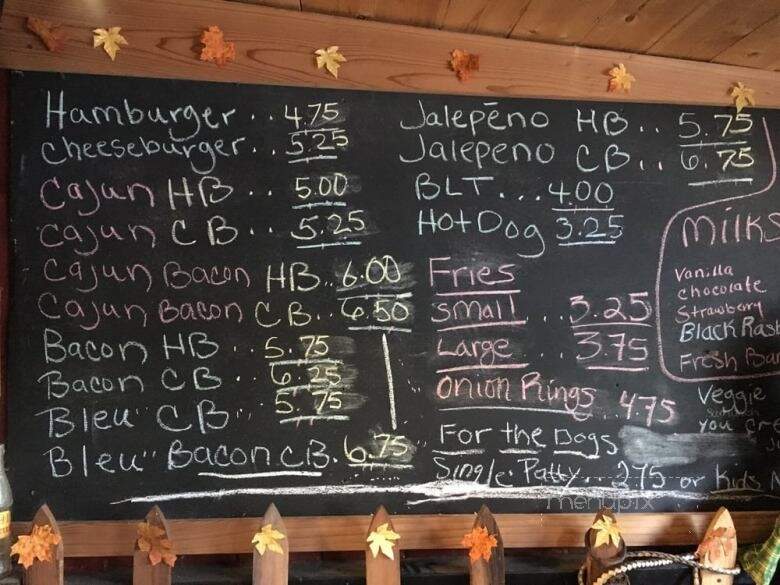 Hamburger .. 4.75
cheeseburger .. 5.25
Cajun HB .. 5.00
Cajun CB .. 5.25
Cajun Bacon HB .. 6.00
Cajun Bacon CB .. 6.50
Bacon HB .. 5.75
Bacon CB .. 6.25
Bleu" CB .. 5.75
Bleu" Bacon CB . 6.75
Jalepēno HB .. 5.75
Jalepeno CB .. 6.75
BLT ... 4.00
Hot Dog 3.25
Fries
small ... 3.25
Large ... 3.75
Onion Rings .. 4.75
For the Dogs
Single Patty ... 2.75 or Kids
Milks
Vanilla
chocolate
Strawberry
Black Ras
Fresh Ba
Veggie
you
menupix